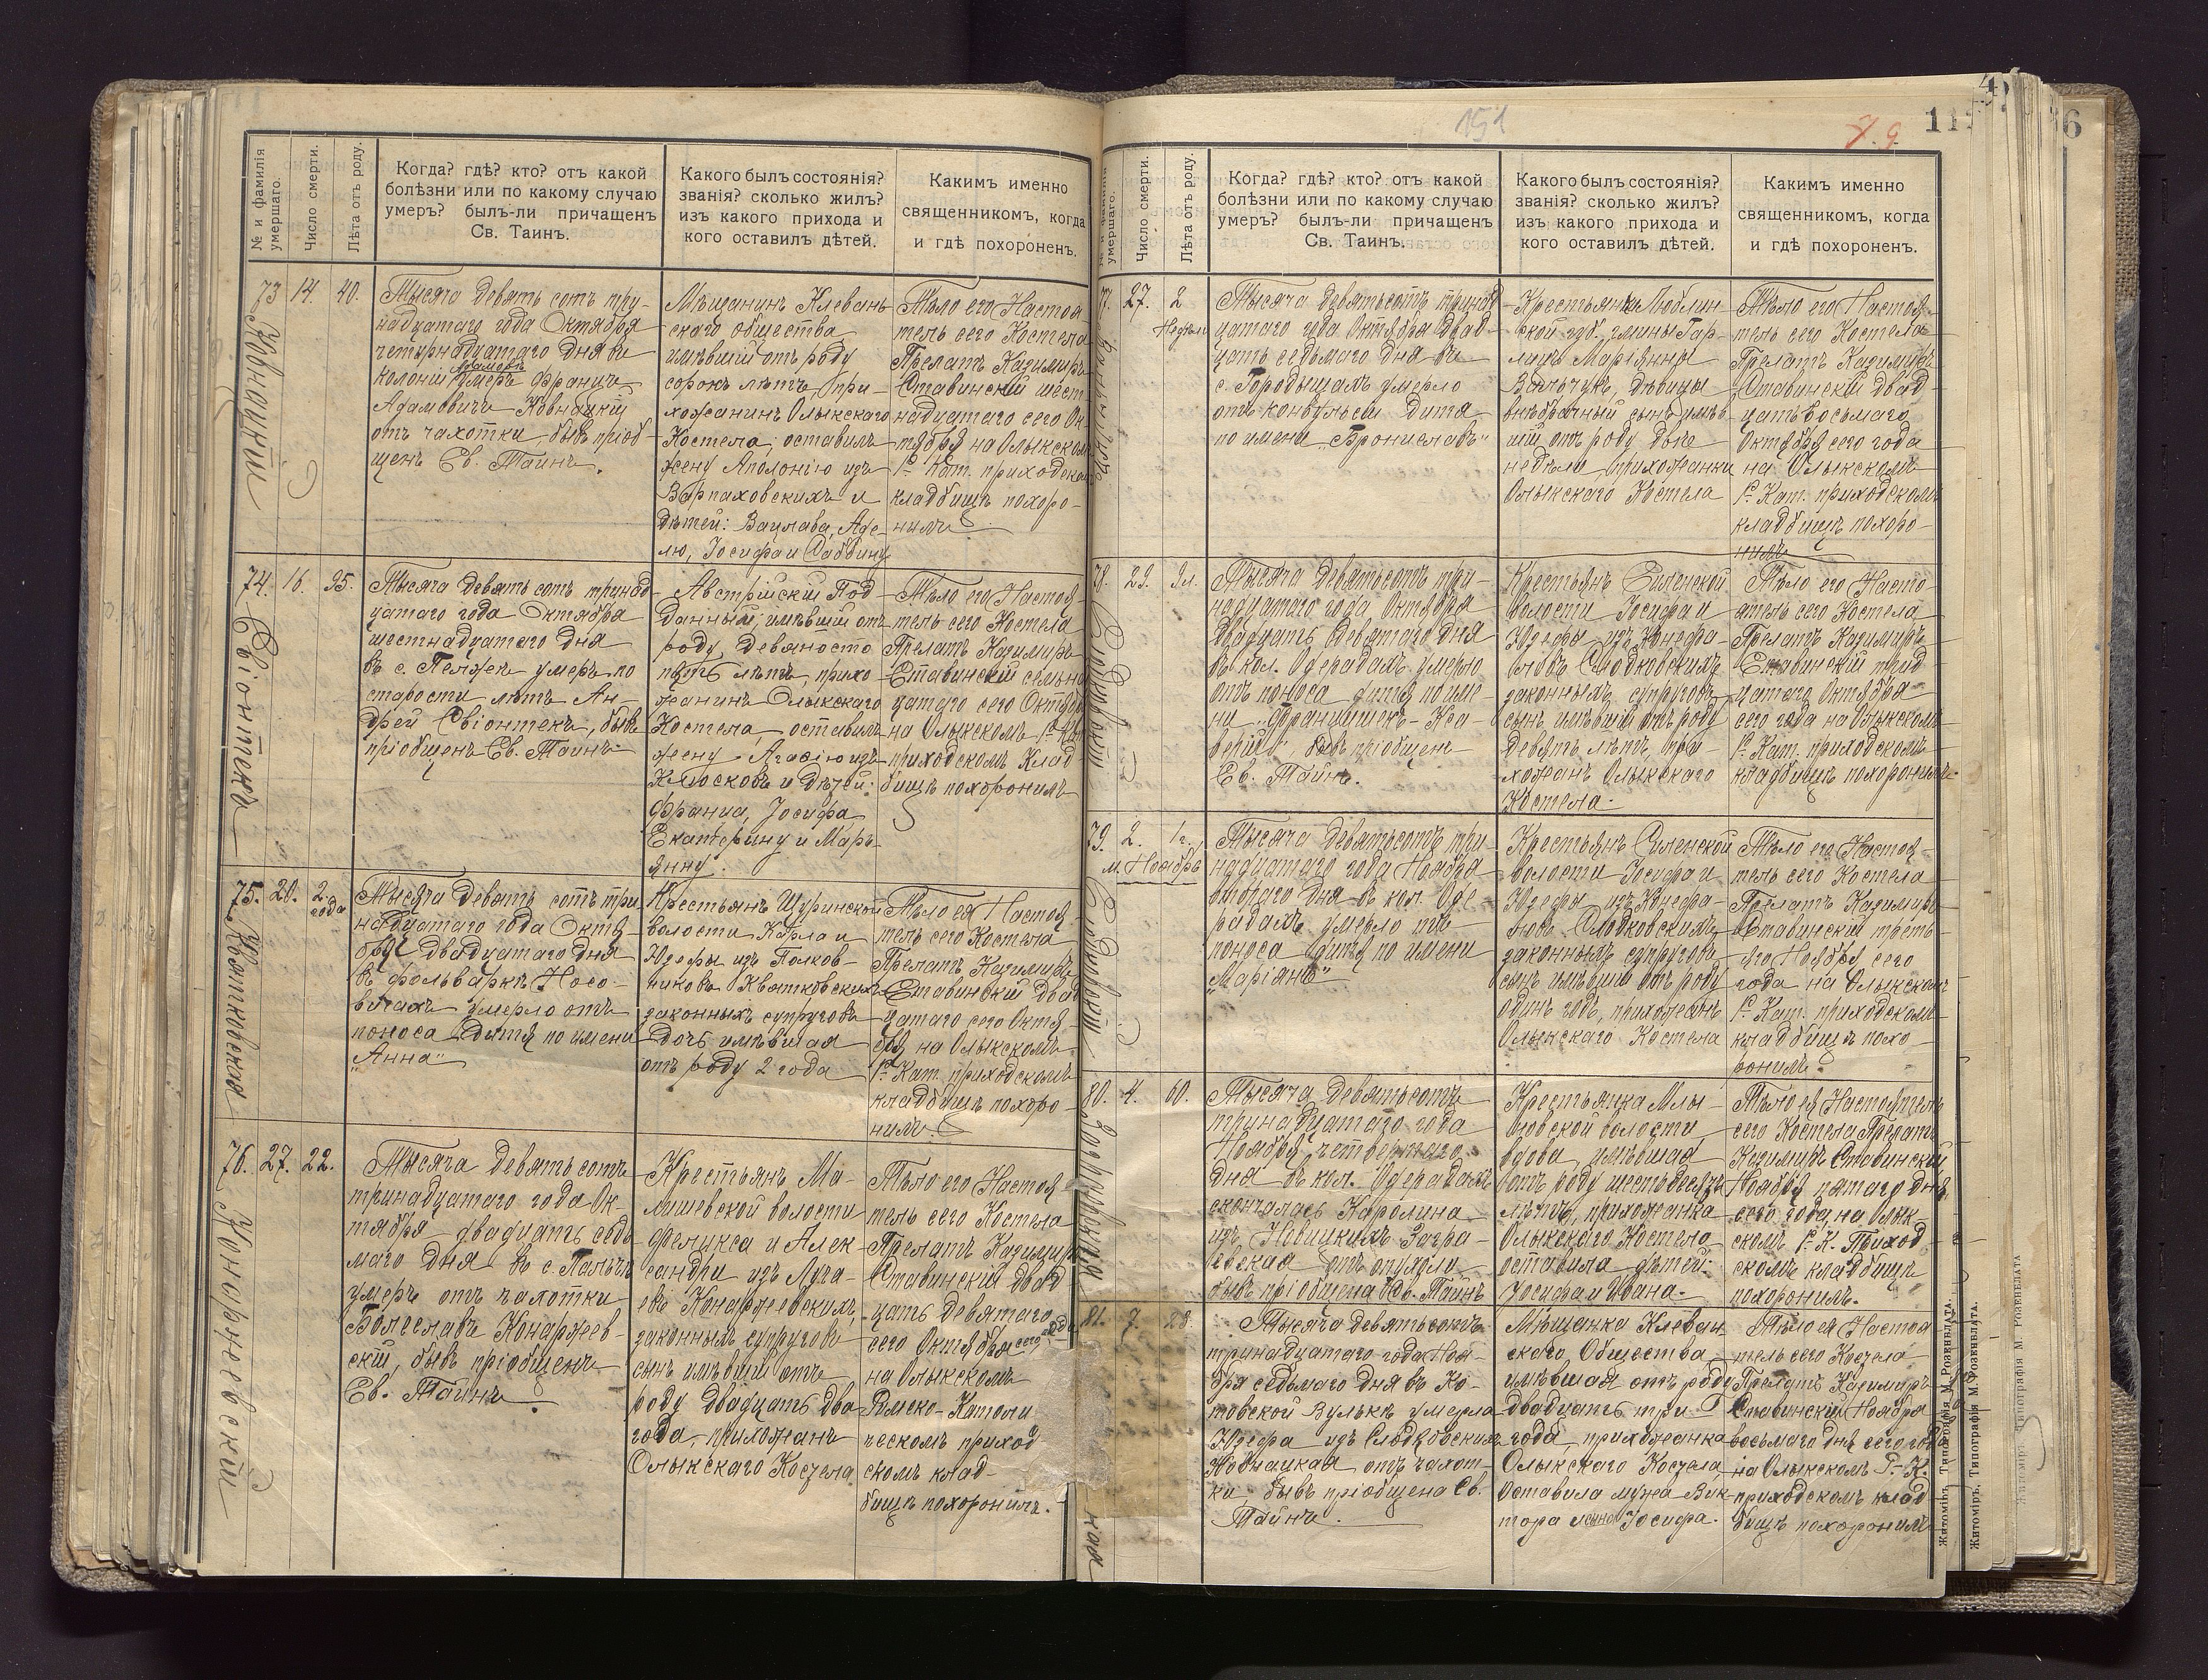 № и фамилія
умершаго.
Число смерти.
Лѣта отъ роду.
Когда? гдѣ? кто? отъ какой
болѣзни или по какому случаю
умеръ? былъ-ли причащенъ
Св. Таинъ.
Какого былъ состоянія?
званія? сколько жилъ?
изъ какого прихода и
кого оставилъ дѣтей.
Какимъ именно
священникомъ, когда
и гдѣ похороненъ.
73
14.
40.
Тысяча девять сотъ три-
надцатаго года Октября
четырнадцатаго дня въ
колоніи умеръ Франць
Адамовичъ Ковнацкій
отъ чахотки, бывъ пріоб
щенъ Св. Таинъ.
Мѣщанинъ Клевань
скаго общества
имѣвшій отъ роду
сорокъ лѣтъ, при-
хожанинъ Олыкскаго
Костела; оставилъ
жену Аполонію изъ
Варпаховскихъ и
дѣтей: Вацлава, Аде-
лю, Іосифа и Саббину
Тѣло его Настоя
тель сего Костела
Прелатъ Казимиръ
Ставинскій шест
надцатаго сего Ок
тября на Олыкском
Р. Кат. приходском
кладбищѣ похоро-
нилъ
74.
16.
95.
Свіонтекъ
Тысяча девять сотъ тринад
цатаго года Октября
шестнадцатаго дня
въ с. Пелжеи умеръ по
старости лѣтъ Ан-
дрей Свіонтекъ, бывъ
пріобщенъ Св. Таинъ
Австрійскій Под
данный, имѣвшій отъ
роду девяносто
пять лѣтъ, прихо-
жанинъ Олыкскаго
Костела, оставилъ
жену Агафію изъ
Клюсковъ и дѣтей:
Франца, Іосифа
Екатерину и Марь-
янну.
Тѣло его Настоя
тель сего Костела
Прелатъ Казимиръ
Ставинскій семьна
цатаго сего Октяб
на Олыкскомъ Р. Кат
приходскомъ клад
бищѣ похоронилъ
75.
20.
2
года
Квятковская
Тысяча девять сотъ три
надцатаго года Октя-
бря двадцатаго дня
въ фольваркѣ Носо-
вичахъ умерло отъ
поноса дитя по имени
„Анна“
Крестьянъ Щуринской
волости Карла и
Юзефы изъ Полков-
никовъ Квятковскихъ
законныхъ супруговъ
дочь имѣвшая
отъ роду 2 года
Тѣло ея Настоя
тель сего Костела
Прелатъ Казимиръ
Ставинскій двад
цатаго сего Октя-
бря на Олыкскомъ
Р. Кат. приходскомъ
кладбищѣ похоро-
нилъ.
76.
27.
22.
Конаржевскій
Тысяча девять сотъ
тринадцатаго года Ок-
тября двадцать седь
маго дня въ с. Пальче
умеръ отъ чахотки
Болеславъ Конаржев-
скій, бывъ пріобщенъ
Св. Таинъ.
Крестьянъ Ма-
лишевской волости
Феликса и Алек-
сандры изъ Луча-
евъ Конаржевскихъ,
законныхъ супруговъ
сынъ имѣвшій отъ
роду двадцать два
года, прихожанъ
Олыкскаго Костела
Тѣло его Настоя
тель сего Костела
Прелатъ Казимиръ
Ставинскій двад
цать девятаго
сего Октября сего года
на Олыкскомъ
Римско-Католи
ческомъ приход
скомъ клад-
бищѣ похоронилъ.
151
№ и фамилія
умершаго.
Число смерти.
Лѣта отъ роду.
Когда? гдѣ? кто? отъ какой
болѣзни или по какому случаю
умеръ? былъ-ли причащенъ
Св. Таинъ.
Какого былъ состоянія?
званія? сколько жилъ?
изъ какого прихода и
кого оставилъ дѣтей.
Какимъ именно
священникомъ, когда
и гдѣ похороненъ.
27.
2
недѣли
Тысяча девятьсотъ тринад
цатаго года Октября двад
цать седьмаго дня въ
с. Городыщахъ умерло
отъ конвульсіи дитя
по имени „Брониславъ“
Крестьянки Люблин-
ской губ. гмины Гар-
лицъ Маріянны
Вальчукъ, дѣвицы
внѣбрачный сынъ имѣв
шій отъ роду двѣ
недѣли, прихожанки
Олыкскаго Костела
Тѣло его Настоя-
тель сего Костела
Прелатъ Казимиръ
Ставинскій двад
цать восьмаго
Октября сего года
на Олыкскомъ
Р. Кат. приходскомъ
кладбищѣ похоро-
нилъ
78.
29.
9 л.
Тысяча девятьсотъ три-
надцатаго года Октября
двадцать девятаго дня
въ кол. Одерадахъ умерло
отъ поноса дитя по име-
ни „Францишекъ-Кса-
верій“, бывъ пріобщенъ
Св. Таинъ.
Крестьянъ Силенской
волости Іосифа и
Юзефы изъ
законныхъ супруговъ
сынъ имѣвшій отъ роду
девять лѣтъ, при-
хожанъ Олыкскаго
Костела.
Тѣло его Насто-
ятель сего Костела
Прелатъ Казимиръ
Ставинскій трид-
цатаго Октября
сего года на Олыкскомъ
Р. Кат. приходскомъ
кладбищѣ похоронилъ.
79.
2.
1 г.
м. Ноябрь
Тысяча девятьсотъ три-
надцатаго года Ноября
втораго дня въ кол. Оде-
радахъ умерло отъ
поноса дитя по имени
„Маріянъ“
Крестьянъ Силенской
волости Іосифа и
Юзефы изъ
законныхъ супруговъ
сынъ имѣвшій отъ роду
одинъ годъ, прихожанъ
Олыкскаго Костела
Тѣло его Настоя-
тель сего Костела
Прелатъ Казимиръ
Ставинскій треть-
яго Ноября сего
года на Олыкскомъ
Р. Кат. приходскомъ
кладбищѣ похо-
ронилъ.
80.
4.
60.
Тысяча девятьсотъ
тринадцатаго года
Ноября четвертаго
дня въ кол. Одерадахъ
скончалась Каролина
изъ Новицкихъ Загра-
евская отъ опухоли
бывъ пріобщена Св. Таинъ
Крестьянка Млы-
новской волости,
вдова, имѣвшая
отъ роду шестьдесятъ
лѣтъ, прихожанка
Олыкскаго Костела,
оставила дѣтей:
Іосифа и Ивана.
Тѣло ея Настоятель
сего Костела Прелатъ
Казимиръ Ставинскій
Ноября пятаго дня
сего года, на Олык-
скомъ Р. К. Приход
скомъ кладбищѣ
похоронилъ.
81.
7.
23.
Тысяча девятьсотъ
тринадцатаго года Ноя-
бря седьмаго дня въ Ко-
товской Вулькѣ умерла
Юзефа изъ
Ковнацкая отъ чахот-
ки бывъ пріобщена Св.
Таинъ.
Мѣщанка Клеван
скаго Общества
имѣвшая отъ роду
двадцать три
года, прихожанка
Олыкскаго Костела,
Оставила мужа Вик
тора и сына Іосифа.
Тѣло ея Настоя
тель сего Костела
Прелатъ Казимиръ
Ставинскій Ноября
восьмаго дня сего года
на Олыкскомъ Р.-К.
приходскомъ клад
бищѣ похоронилъ
ная
Житоміръ, Типографія М. Розенблата.
Житоміръ, Типографія М. Розенблата.
Житоміръ, Типографія М. Розенблата